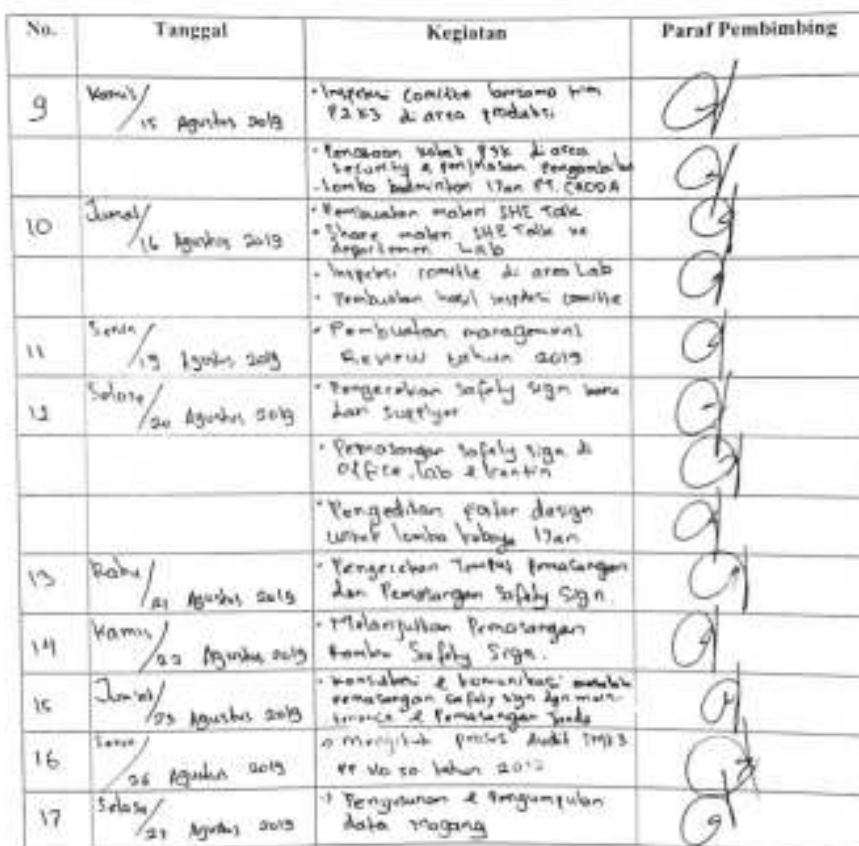 No. Tanggal Kegiatan Paraf Pembimbing
9 Kamis/ 15 Agustus 2019
- Inspeksi Comitte bersama tim
P2K3 di area produksi
- kotak P3K di area
security &
- Lomba badminton 17an PT. CRODA
10 Jumat/ 16 Agustus 2019
- Pembuatan materi SHE Talk
- Share materi SHE Talk ke
departemen Lab
- Inspeksi comitte di area Lab
- Pembuatan hasil inspeksi comitte
11 Senin/ 19 Agustus 2019
- Pembuatan management
Review tahun 2019
12 Selasa/ 20 Agustus 2019
- Pengecekan Safety Sign baru
dari Supplyer
- Pemasangan Safety Sign di
Office, Lab & kantin
- Pengeditan design
untuk lomba 17an
13 Rabu/ 21 Agustus 2019
- Pengecekan Pemasangan
dan Pemasangan Safety Sign.
14 Kamis/ 22 Agustus 2019
- Melanjutkan Pemasangan
Safety Sign.
15 Jum'at/ 23 Agustus 2019
- Konsultasi & komunikasi
pemasangan safety sign dgn main-
tenance & Pemasangan
16 Senin/ 26 Agustus 2019
- Mengikuti proses Audit SMK3
PP No 50 tahun 2012
17 Selasa/ 27 Agustus 2019
- Penyusunan & Pengumpulan
data magang